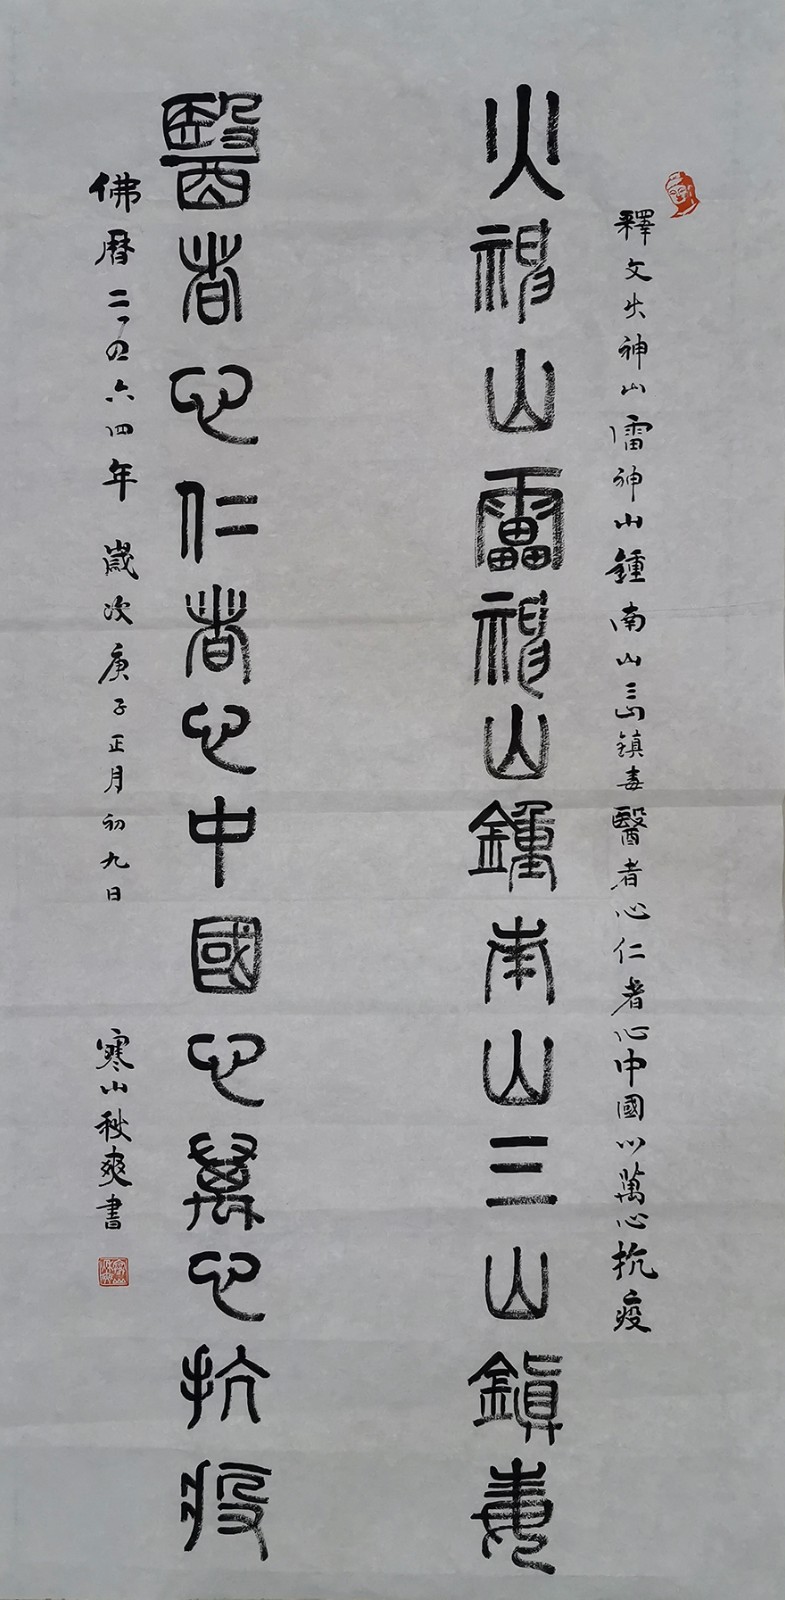 釋文火神山雷神山鍾南山三山鎮毒醫者心仁者心中國心萬心抗疫
火神山雷神山鍾南山三山鎮毒
醫者心仁者心中國心萬心抗疫
佛曆二〇四六四年 歲次庚子正月初九日 寒山秋爽書